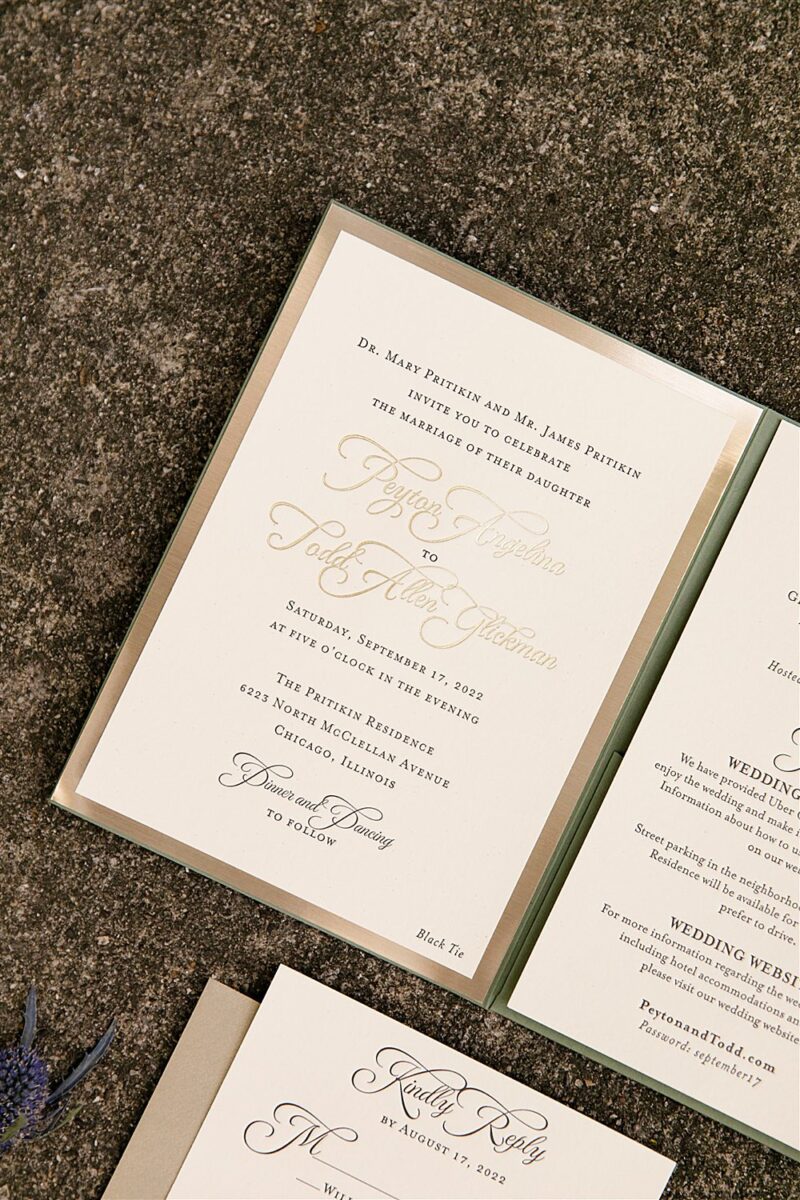 Dr. Mary Pritikin and Mr. James Pritikin
invite you to celebrate
the marriage of their daughter
Peyton Angelina
to
Todd Allen Glickman
Saturday, September 17, 2022
at five o'clock in the evening
The Pritikin Residence
6223 North McClellan Avenue
Chicago, Illinois
Dinner and Dancing
to follow
Black Tie
Hosted
WEDDING
We have provided Uber
enjoy the wedding and make
Information about how to
on our
Street parking in the
Residence will be available for
prefer to drive.
WEDDING
For more information regarding the
including hotel accommodations
please visit our wedding website
PeytonandTodd.com
Password: september17
Kindly Reply
by August 17, 2022
M